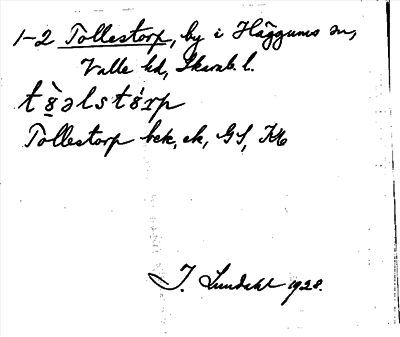 1-2 Tollestorp, by i Häggums sn,
Valle hd, Skarab. l.
Tollestorp bek, ek, GS, KK
I. Lundahl 1928.